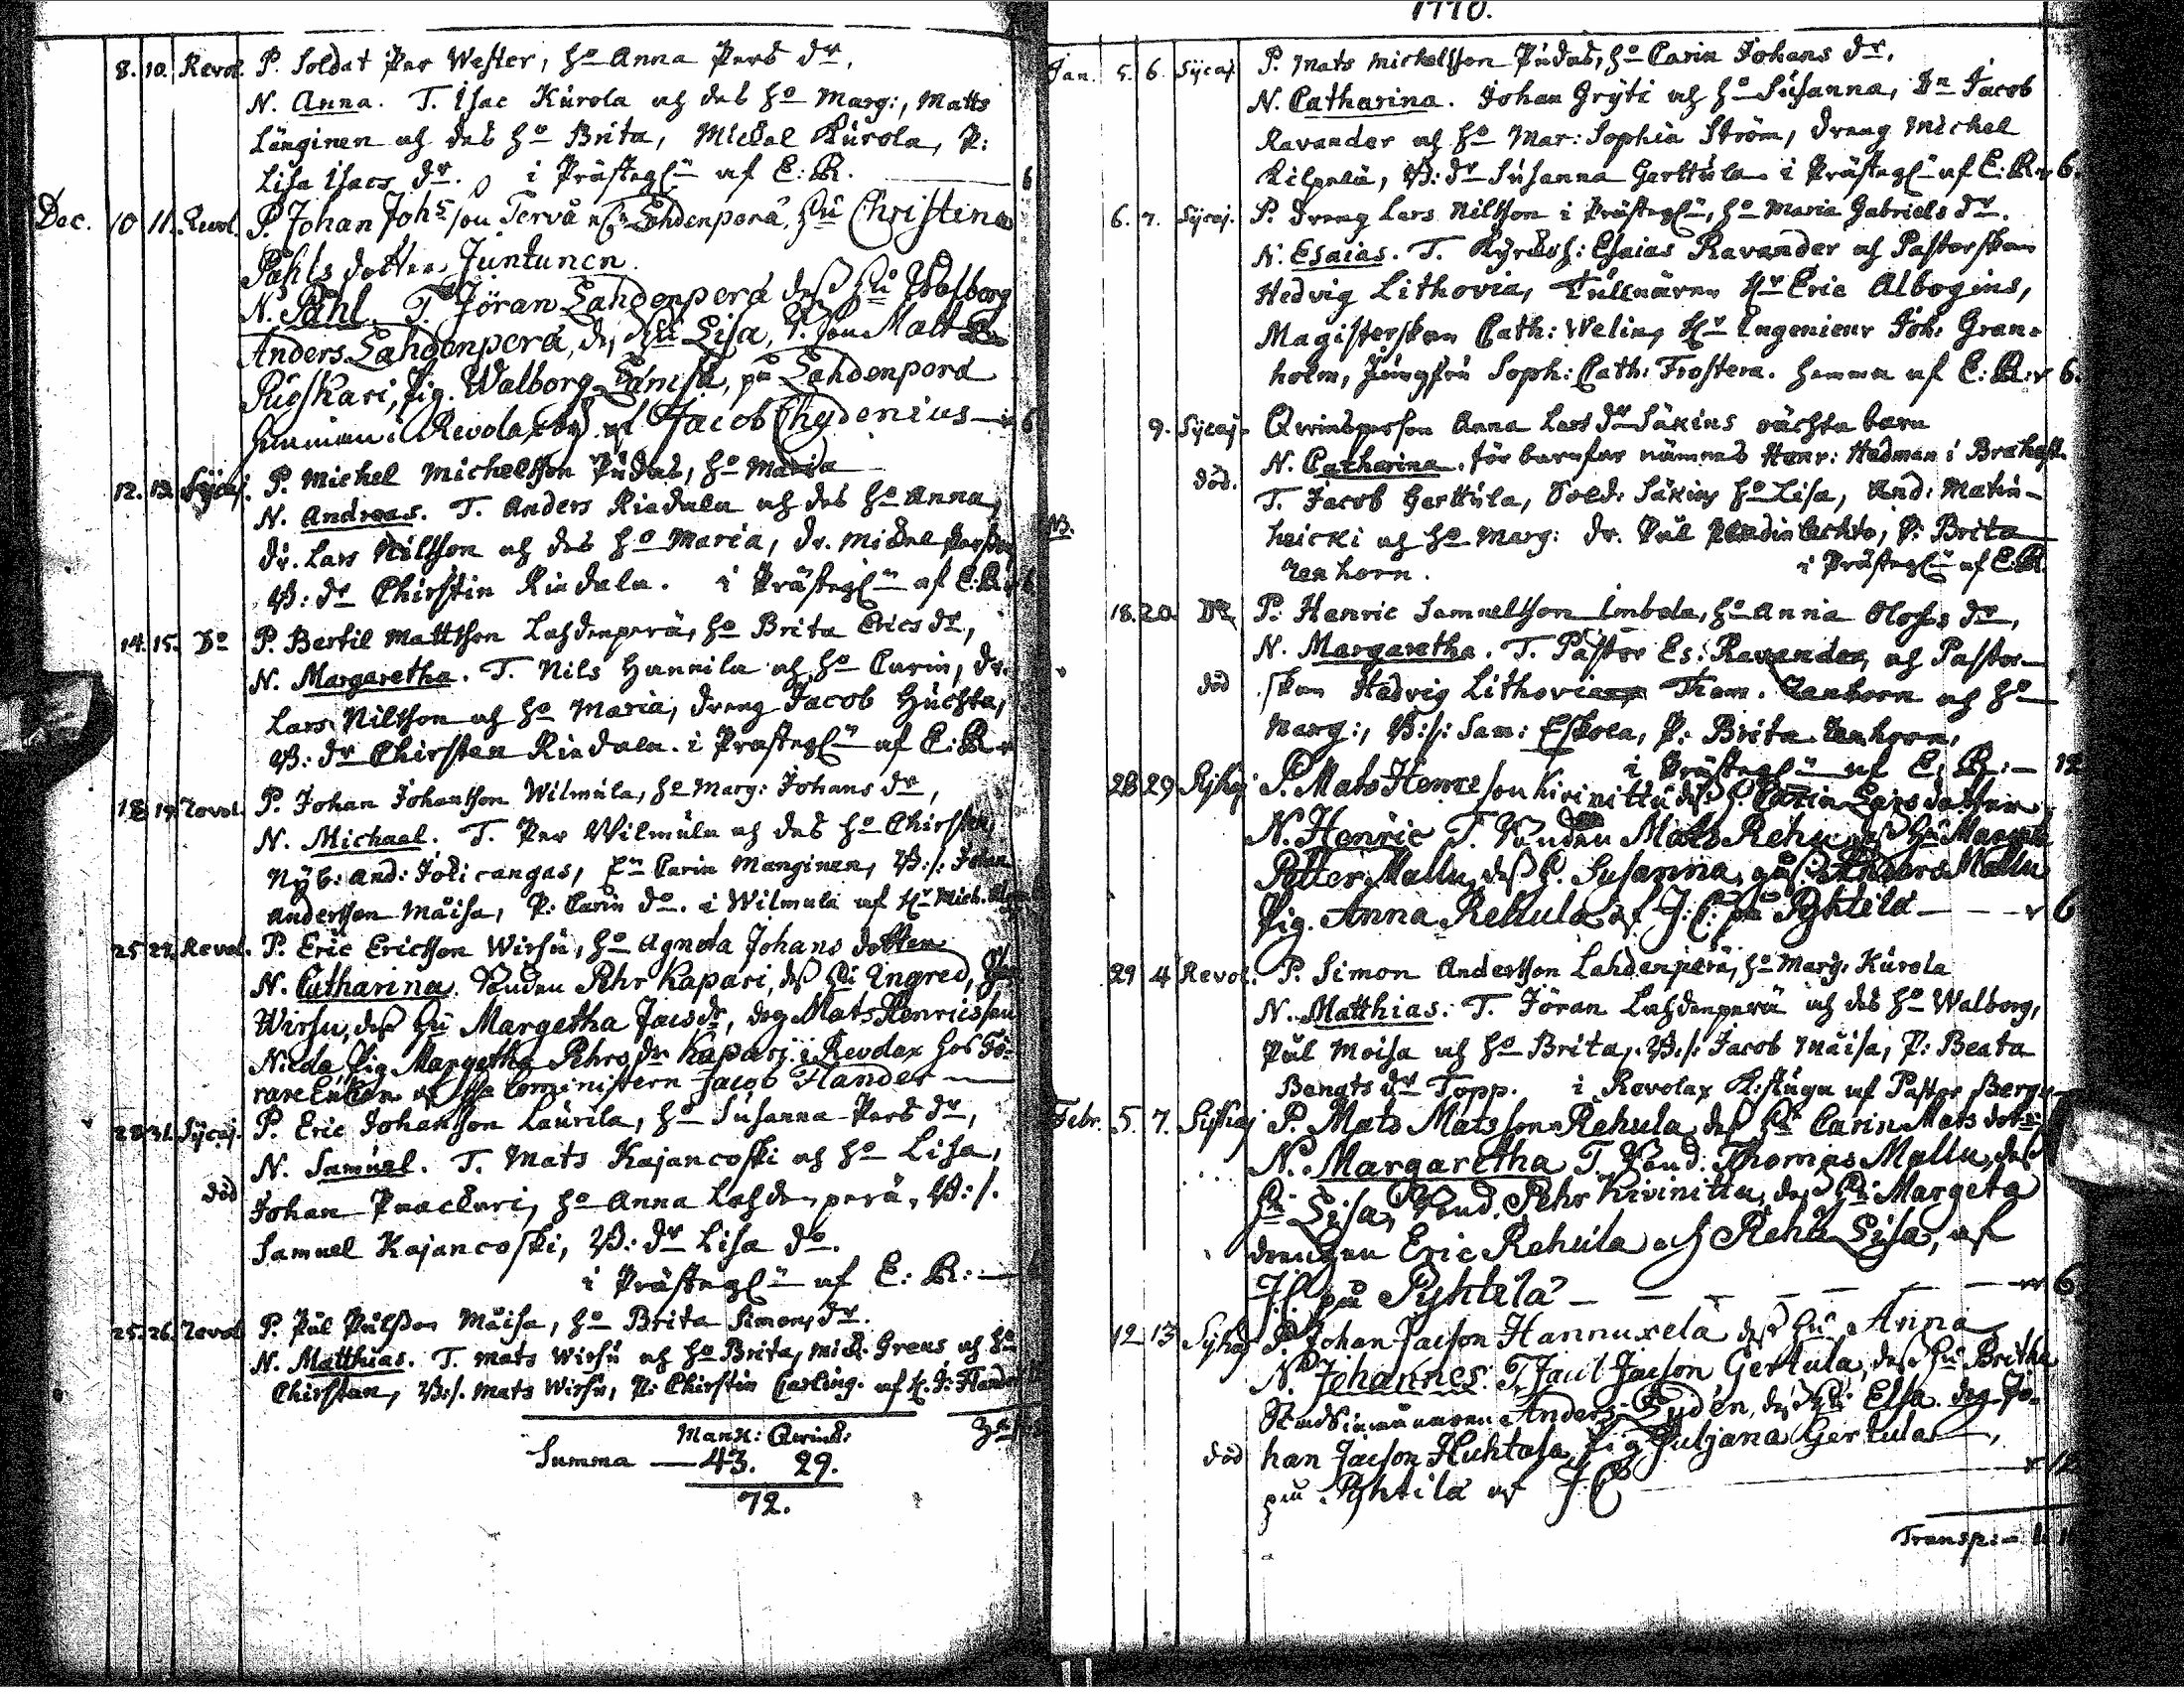 8. 10. Revol. P. Soldat Per Wester, ho Anna Pers dr.
N. Anna. T. Isac Kurola och des ho Marg:, Matts
Länginen och des ho Brita, Michel Kurola, P:
Lisa Isacs dr. i Prästeg af E: R. 6
Dec. 10 11. Revol. P. Johan Johsson Tervå Lahdenperä, hu Christina
Påhls dotter Juntunen
N. Påhl. T. Jöran Lahdenperä dess hu Walborg
Anders Lahdenperä, dess hu Lisa, Matt
Ruoskari, Pig. Walborg på Lahdenperä
hemman i Revolax af Jacob Chydenius 6
12. 13. Sijcaj. P. Michel Michelsson Pudas, ho Maria
N. Andreas. T. Anders Riedula och des ho Anna,
dr. Lars Nilsson och des ho Maria, dr. Michel
B: dr Chirstin Riedula. i Prästeg af E: R.
14. 15. Do P. Bertil Mattsson Lahdenperä, ho Brita Erics dr,
N. Margaretha. T. Nils Hannila och ho Carin, dr.
Lars Nilsson och ho Maria, dreng Jacob Huchta,
B: dr Chirsten Riedula. i Prästeg af E: R
18 19. Revol. P. Johan Johansson Wilmula, ho Marg: Johans dr,
N. Michael. T. Per Wilmula och des ho Chirsten,
Nyb: And: Joki cangas, Carin Manginen, B:s: Johan
Andersson Måisa, P: Carin do. i Wilmula af Hr Mich.
25 27. Revol. P. Eric Ericsson Wirsu, ho Agneta Johans dotter
N. Catharina. Bonden Pehr Kapari, dess hu Ingred,
Wirsu, dess hu Margetha Jacsdr, dreg Mats Henricsson
Nieda, Pig. Margetha Pehrs dr Kapari i Revolax hos Fö-
rare Enkan af Cominister Jacob Flander
28 31. Sijcaj. P. Eric Johansson Laurila, ho Susanna Pers dr,
N. Samuel. T. Mats Kajancoski och ho Lisa,
död Johan Paackari, ho Anna Lahdenperä, B:s.
Samuel Kajancoski, B: dr Lisa do.
i Prästeg af E: R:
25. 26. Revol P. Pål Pålsson Måisa, ho Brita Simons dr.
N. Matthias. T. Mats Wirsu och ho Brita, Mick: Greus och ho
Chirsten, B:s. Mats Wirsu, P: Chirstin Carling. af H. J: Flander
Mank: Qwink:
Summa 43. 29.
72.
1770.
Jan. 5. 6. Sijcaj P. Mats Michelsson Pudas, ho Carin Johans dr.
N. Catharina. Johan Gryti och ho Susanna, Jacob
Ravander och ho Mar: Sophia Ström, dreng Michel
Kilpela, B: dr Susanna Gerttula i Prästeg af E: R 6.
6. 7. Sijcaj. P. dreng Lars Nilsson i Prästeg, ho Maria Gabriels dr.
N. Esaias. T. Kyrckoh: Esaias Ravander och Pastorskan
Hedvig Lithovia, Tullnären Hr Eric Albogius,
Magisterskan Cath: Welin, Hr Ingenieur Joh: Gran-
holm, Jungfru Soph: Cath: Frostera. hemma af E: R: 6.
9. Sijcaj. Qvinspersson Anna Lars dr Säkins oächta barn
död. N. Catharina. för barnfar nämnes Henr: Hedman i Brahest.
T. Jacob Gerttula, Sold: Säkins ho Lisa, And: Matin-
NB. heicki och ho Marg: dr. Pål Brita
Zenhorn. i Prästeg af E: R.
18. 20. Do P: Henric Samuelsson Imbola, ho Anna Olofs dr,
N. Margaretha. T. Pastor Es: Ravander, och Pastor-
död skan Hedvig Lithovia Thom. Zenhorn och ho
Marg:, B:s: Sam: Eskola, P: Brita Zenhorn,
i Prästeg af E: R: 12
28 29 Sijkaj P. Mats Henricsson Kivinittu dess h. Carin Lars dotter
N. Henric T. Bonden Mats Rehu dess hu Margeta
Petter Mallu, dess h. Susanna, Anders Mallu
Pig. Anna Rehula af J. C. på Pyhtilä 6
29 4 Revol. P. Simon Andersson Lahdenperä, ho Marg: Kurola
N. Matthias. T. Jöran Lahdenperä och des ho Walborg,
Pål Moisa och ho Brita, B:s: Jacob Måisa, P: Beata
Bengts dr Topp. i Revolax K:stugu af Pastor Berg
Febr. 5. 7. Sijkaj P. Mats Matsson Rehula dess hu Carin Mats dotter
N. Margaretha T. Bond: Thomas Mallu, dess
hu Lisa, Bond. Pehr Kivinittu, dess hu Margeta
drengen Eric Rehula och Rehu Lisa, af
J. C. på Pyhtilä 6
12 13 Sijkaj P. Johan Jacson Hannuxela dess hu Anna
N. Johannes. T. Jacob Jacson Gertula, dess hu Britha
Anders Lydén, dess hu Elsa. dreg Jo-
död han Jacson Huhtala, Pig Juljana Gertula,
på Pyhtilä af J C 12
Transp: